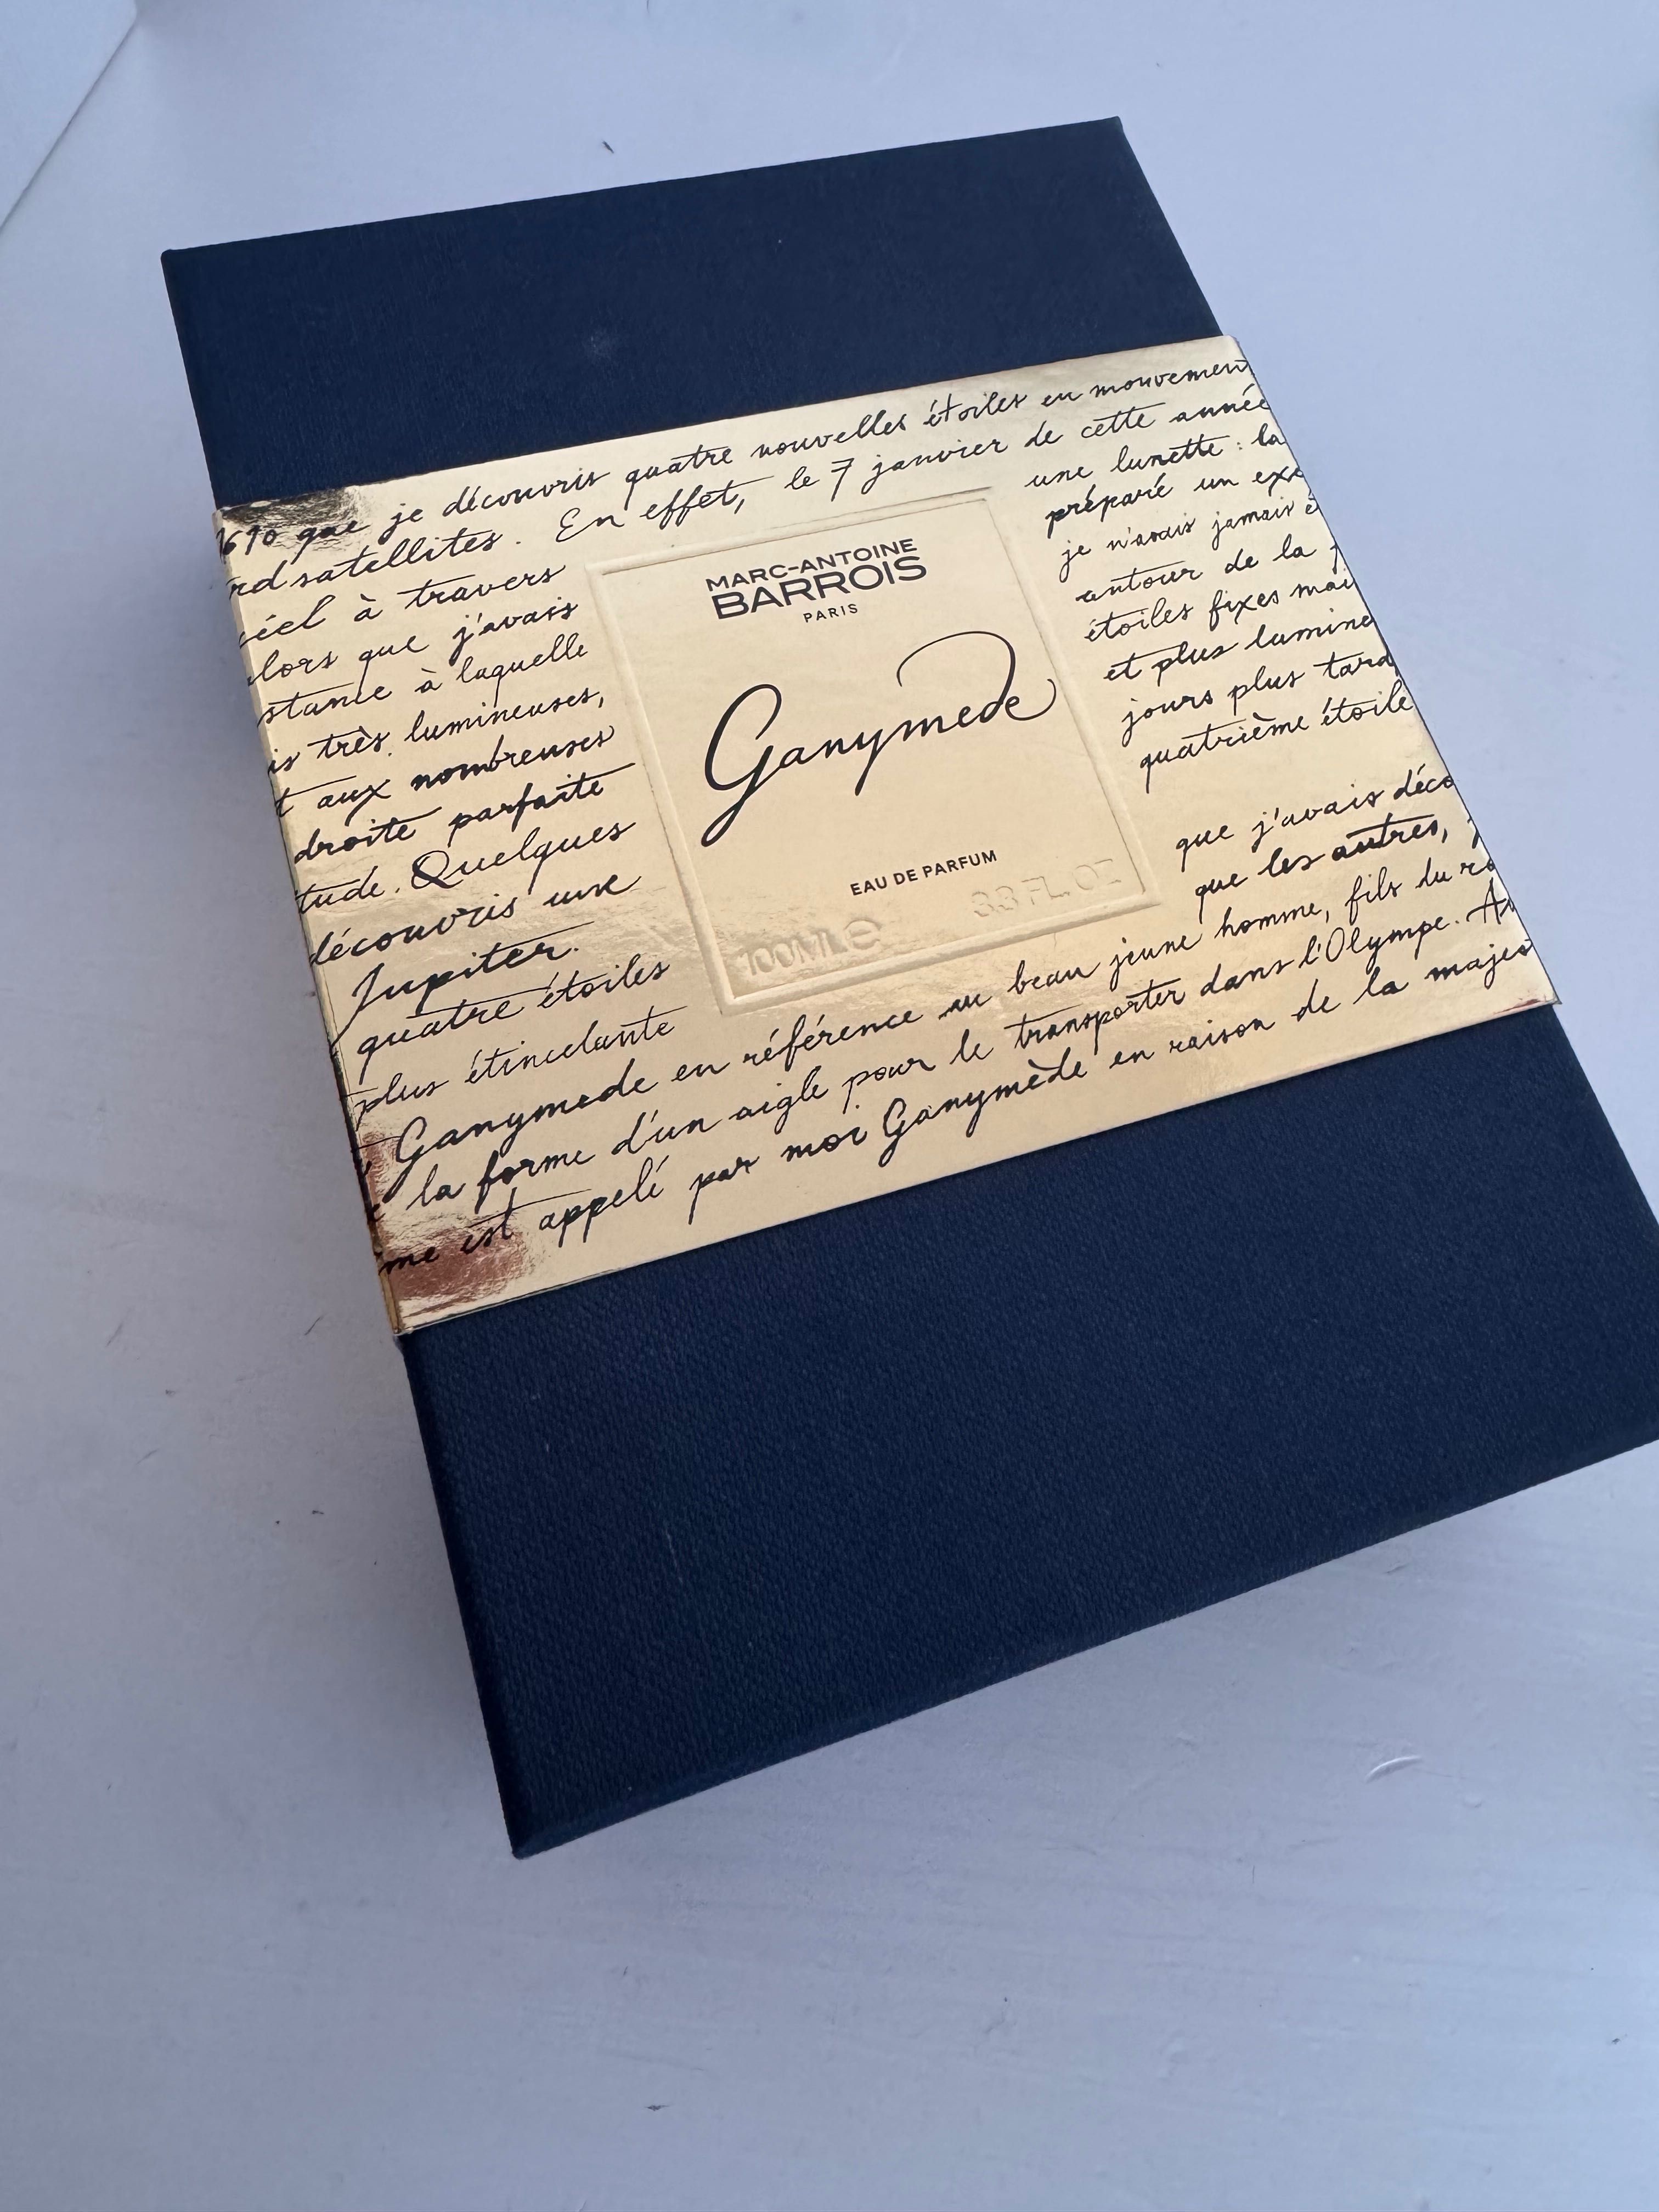 1610 que je découvris quatre nouvelles étoiles en mouvement
satellites. En effet, le 7 janvier de cette année
ciel à travers
une lunette : la
lors que j'avais
préparé un exc
stance à laquelle
je n'avais jamais é
is très lumineuses,
autour de la
t aux nombreuses
étoiles fixes mai
droite parfaite
et plus lumine
tude. Quelques
jours plus tard
découvris une
quatrième étoile
Jupiter.
quatre étoiles
que j'avais déco
plus étincelante
que les autres,
MARC-ANTOINE
BARROIS
PARIS
Ganymede
EAU DE PARFUM
100ML e 3.3 FL. OZ
Ganymede en référence au beau jeune homme, fils du ro
la forme d'un aigle pour le transporter dans l'Olympe. Au
me est appelé par moi Ganymède en raison de la majes